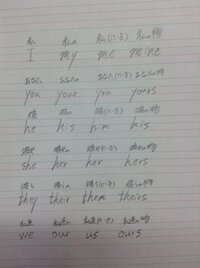 私 私の 私(に・を) 私の物
I my me mine
あなた あなたの あなた(に・を) あなたの物
you your you yours
彼 彼の 彼(に・を) 彼の物
he his him his
彼女 彼女の 彼女(に・を) 彼女の物
she her her hers
彼ら 彼らの 彼ら(に・を) 彼らの物
they their them theirs
私達 私達の 私達(に・を) 私達の物
we our us ours